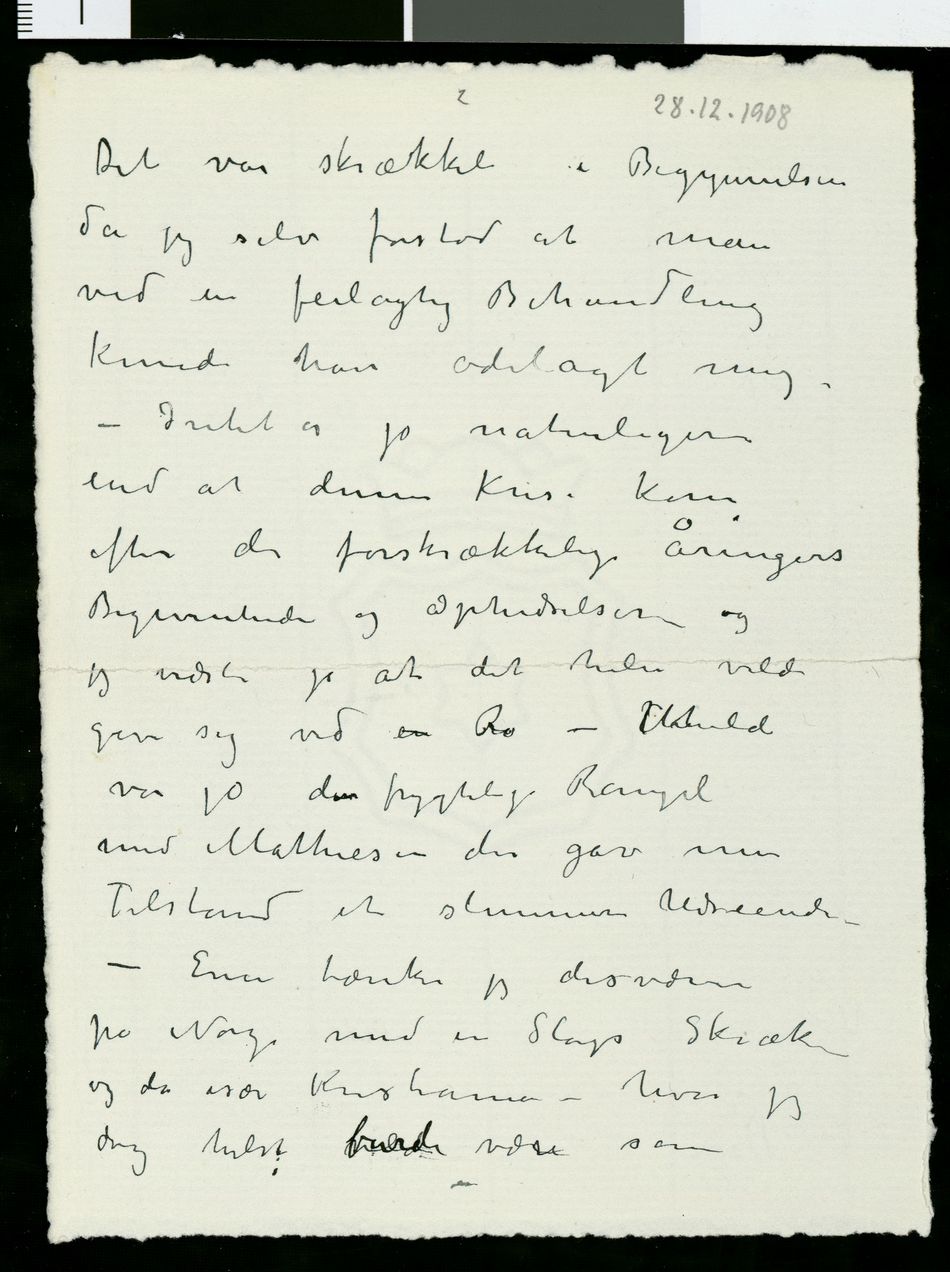 2
28.12.1908
Det var skrækkeli i Begyynnelsen
da jeg selv forstod at man
ved en feilagtig Behandling
kunde have ødelagt mig.
– Intet er jo naturligere
end at denne Krise kom
efter de forskrækkelige Åringers
Begivenheder og Ophidselser – og
jeg vidste jo at det hele vilde
give sig ved en Ro – Uheld
var jo den frygtelige Rangel
med Mathiesen der gav min
Tilstand et slemmere Udseende –
– Ennu tænker jeg desværre
på Norge med en Slags Skræk –
og da især Kristiania – hvor jeg
dog helst burde være som